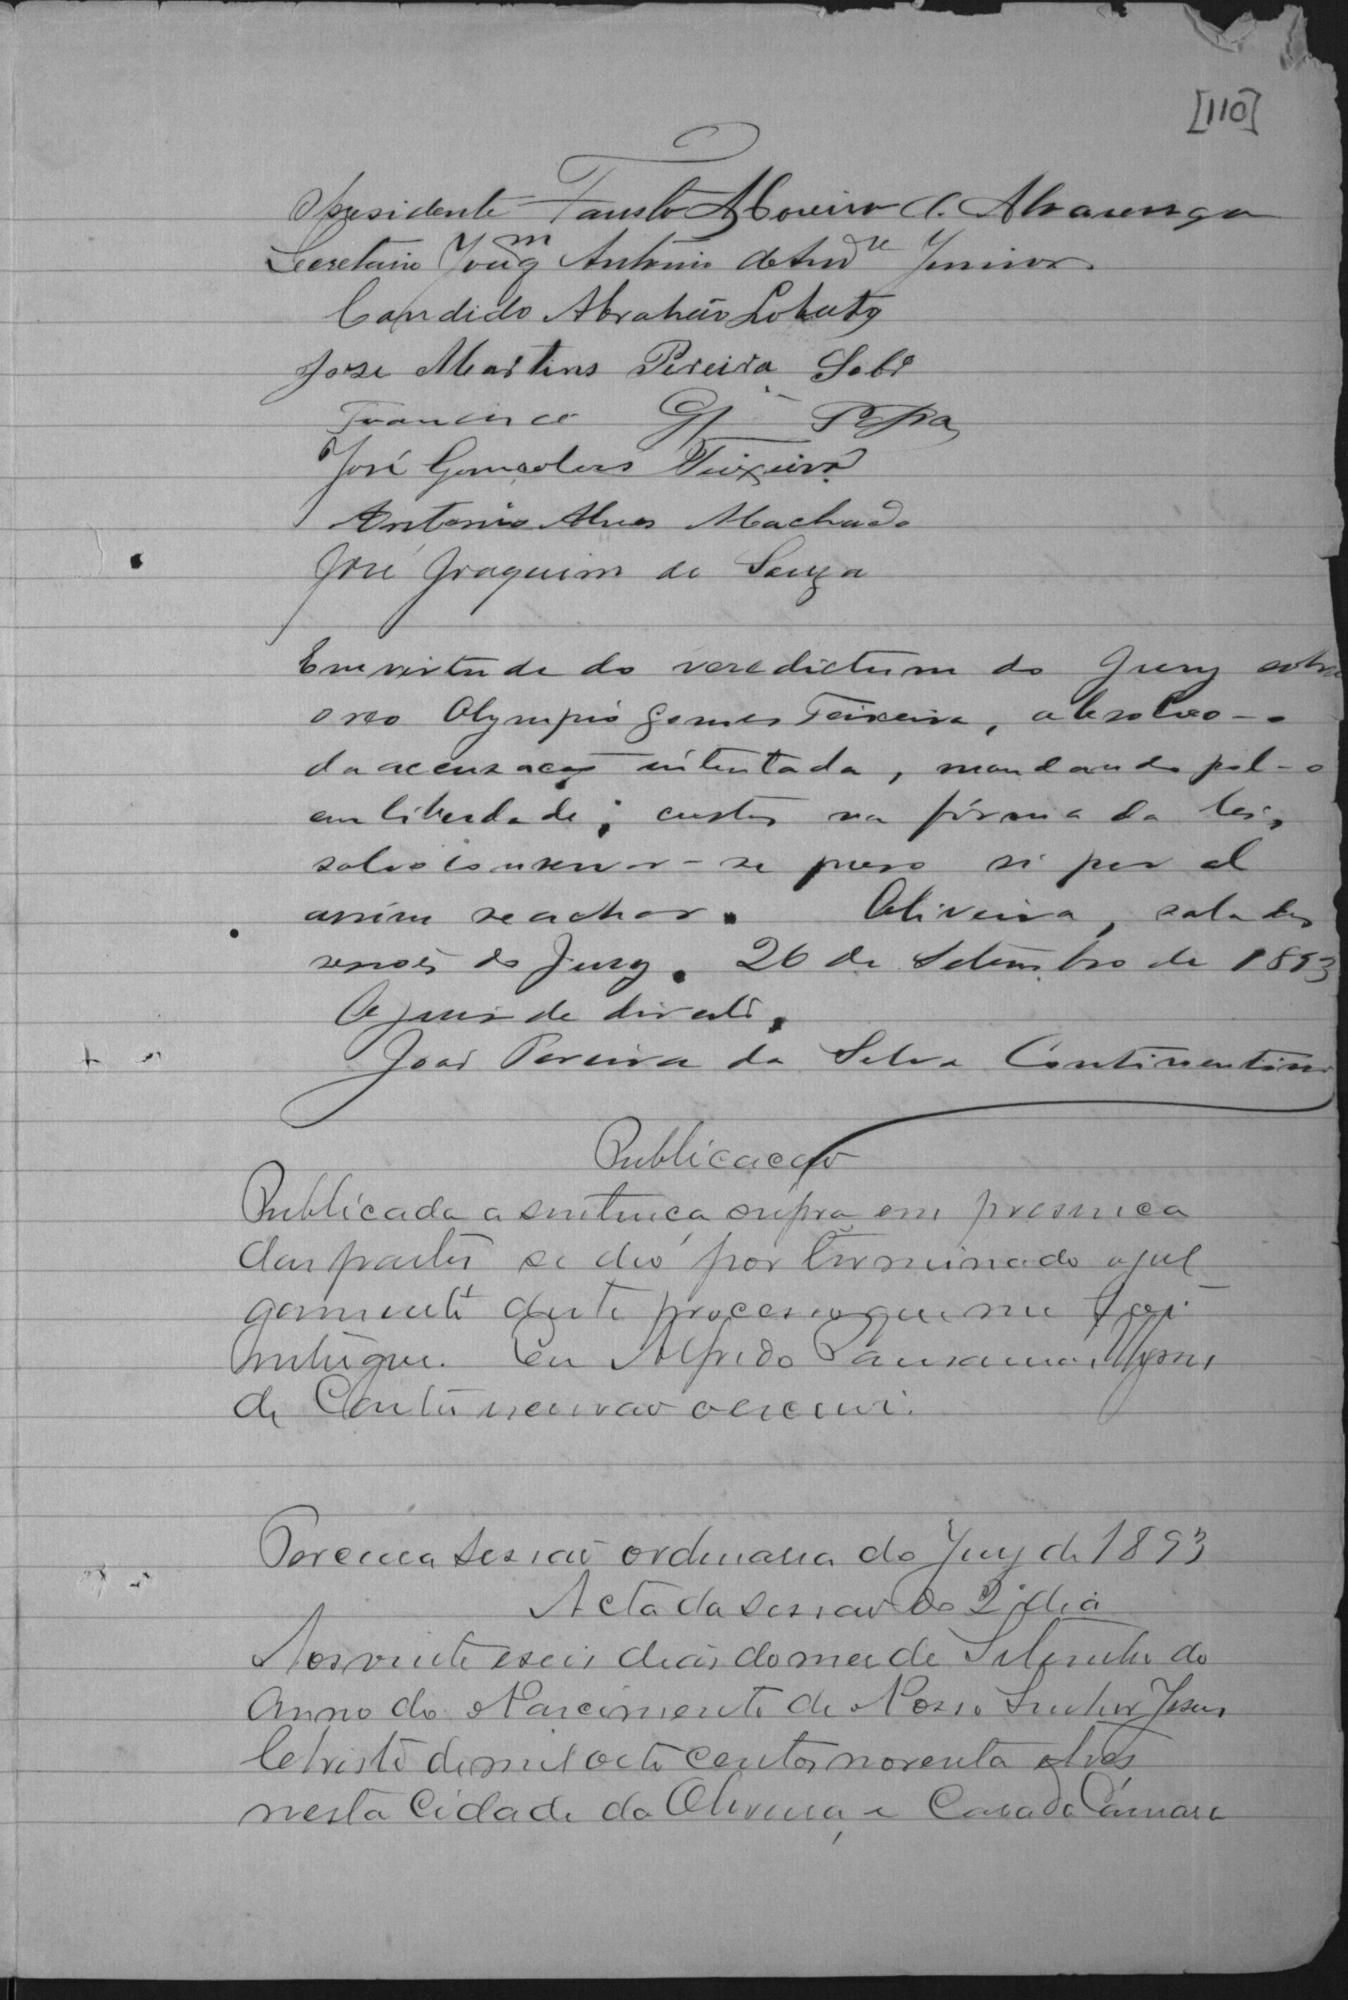 [110]
Presidente Fausto Moreira C. Alvarenga
Secretario Joaqm Antonio de Andre Junior
Candido Abrahão Lobato
Jose Martins Pereira Sobro
Francisco Pra
José Gonçalves Teixeira
Antonio Alves Machado
José Joaquim de Souza
Em virtude do veredictum do Jury sobre
o reo Olympio Gomes Teixeira, absolvo-o
da accusação intentada, mandando pol-o
em liberdade; custas na fórma da lei,
salvo conservar-se preso si por al
assim se achar. Oliveira, sala das
sessões do Jury. 26 de Setembro de 1893
O juiz de direito,
João Pereira da Silva Continentino
Publicação
Publicada a sentença supra em presença
das partes se deo por terminado o jul
gamento deste processo que me foi
entregue. Eu Alfredo
de escrivão o escrevi.
Terceira Sessão ordinaria do Jury de 1893
Acta da Sessão do 2º dia
Aos vinte e seis dias do mez de Setembro do
Anno do Nascimento de Nosso Senhor Jesus
Christo de mil oito centos noventa e tres
nesta Cidade da Oliveira, e Casa da Câmara